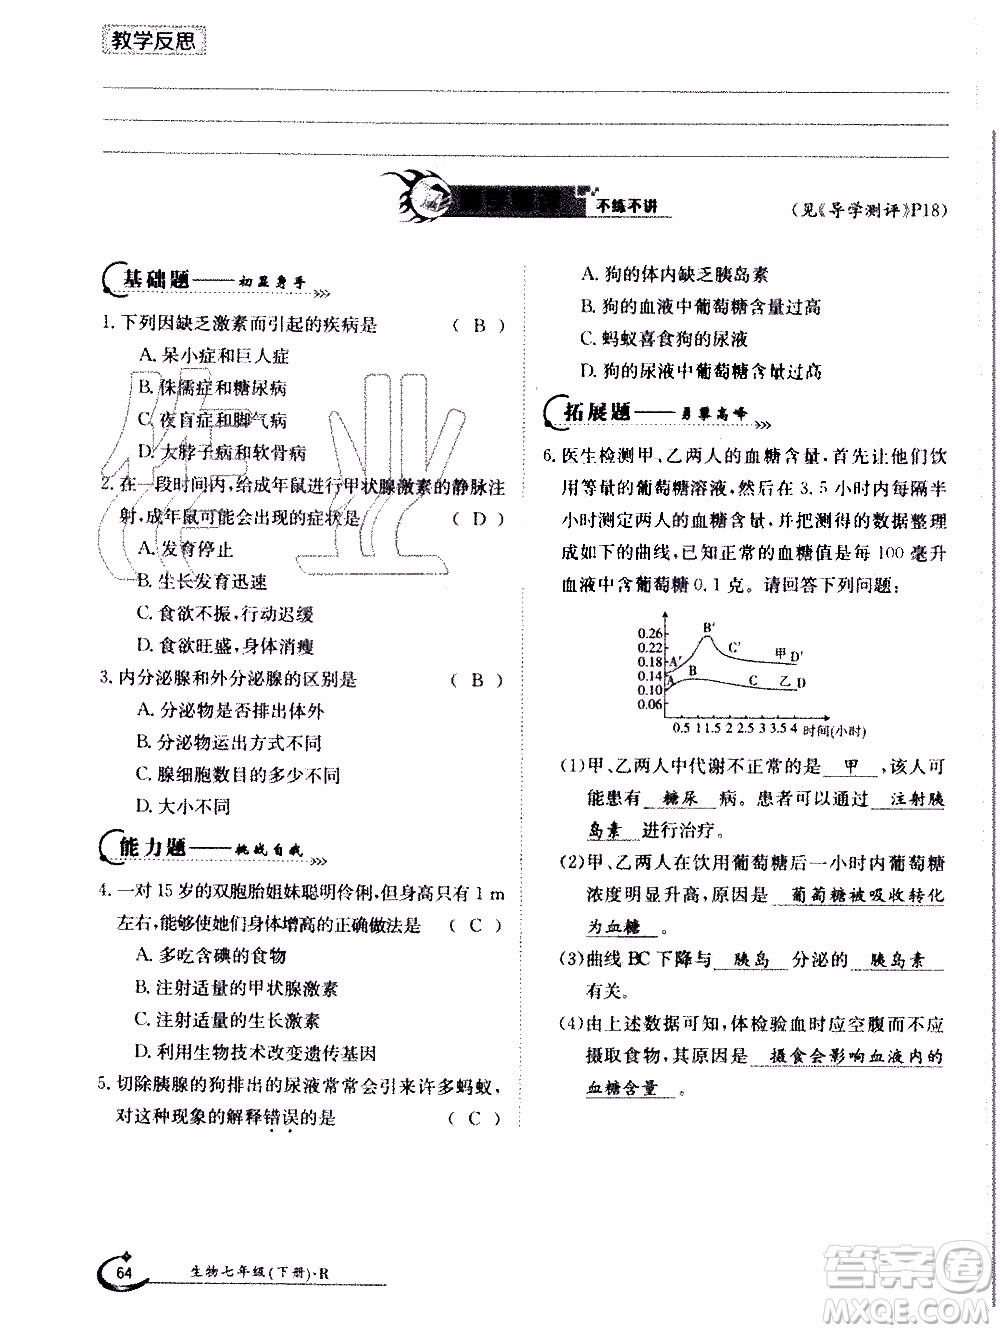 教学反思
不练不讲
(见《导学测评》P18)
基础题——初显身手
1. 下列因缺乏激素而引起的疾病是 ( B )
A. 呆小症和巨人症
B. 侏儒症和糖尿病
C. 夜盲症和脚气病
D. 大脖子病和软骨病
2. 在一段时间内,给成年鼠进行甲状腺激素的静脉注
射,成年鼠可能会出现的症状是 ( D )
A. 发育停止
B. 生长发育迅速
C. 食欲不振,行动迟缓
D. 食欲旺盛,身体消瘦
3. 内分泌腺和外分泌腺的区别是 ( B )
A. 分泌物是否排出体外
B. 分泌物运出方式不同
C. 腺细胞数目的多少不同
D. 大小不同
能力题——挑战自我
4. 一对 15 岁的双胞胎姐妹聪明伶俐,但身高只有 1 m
左右,能够使她们身体增高的正确做法是 ( C )
A. 多吃含碘的食物
B. 注射适量的甲状腺激素
C. 注射适量的生长激素
D. 利用生物技术改变遗传基因
5. 切除胰腺的狗排出的尿液常常会引来许多蚂蚁,
对这种现象的解释错误的是 ( C )
A. 狗的体内缺乏胰岛素
B. 狗的血液中葡萄糖含量过高
C. 蚂蚁喜食狗的尿液
D. 狗的尿液中葡萄糖含量过高
拓展题——勇攀高峰
6. 医生检测甲、乙两人的血糖含量,首先让他们饮
用等量的葡萄糖溶液,然后在 3.5 小时内每隔半
小时测定两人的血糖含量,并把测得的数据整理
成如下的曲线,已知正常的血糖值是每 100 毫升
血液中含葡萄糖 0.1 克。请回答下列问题:
0.26
0.22
0.18
0.14
0.10
0.06
A′ B′ C′ 甲 D′
A B C 乙 D
0.5 1 1.5 2 2.5 3 3.5 4 时间(小时)
(1)甲、乙两人中代谢不正常的是 甲 ,该人可
能患有 糖尿 病。患者可以通过 注射胰
岛素 进行治疗。
(2)甲、乙两人在饮用葡萄糖后一小时内葡萄糖
浓度明显升高,原因是 葡萄糖被吸收转化
为血糖 。
(3)曲线 BC 下降与 胰岛 分泌的 胰岛素
有关。
(4)由上述数据可知,体检验血时应空腹而不应
摄取食物,其原因是 摄食会影响血液内的
血糖含量 。
64 生物七年级(下册)·R
作业
答案圈
MXQE.COM